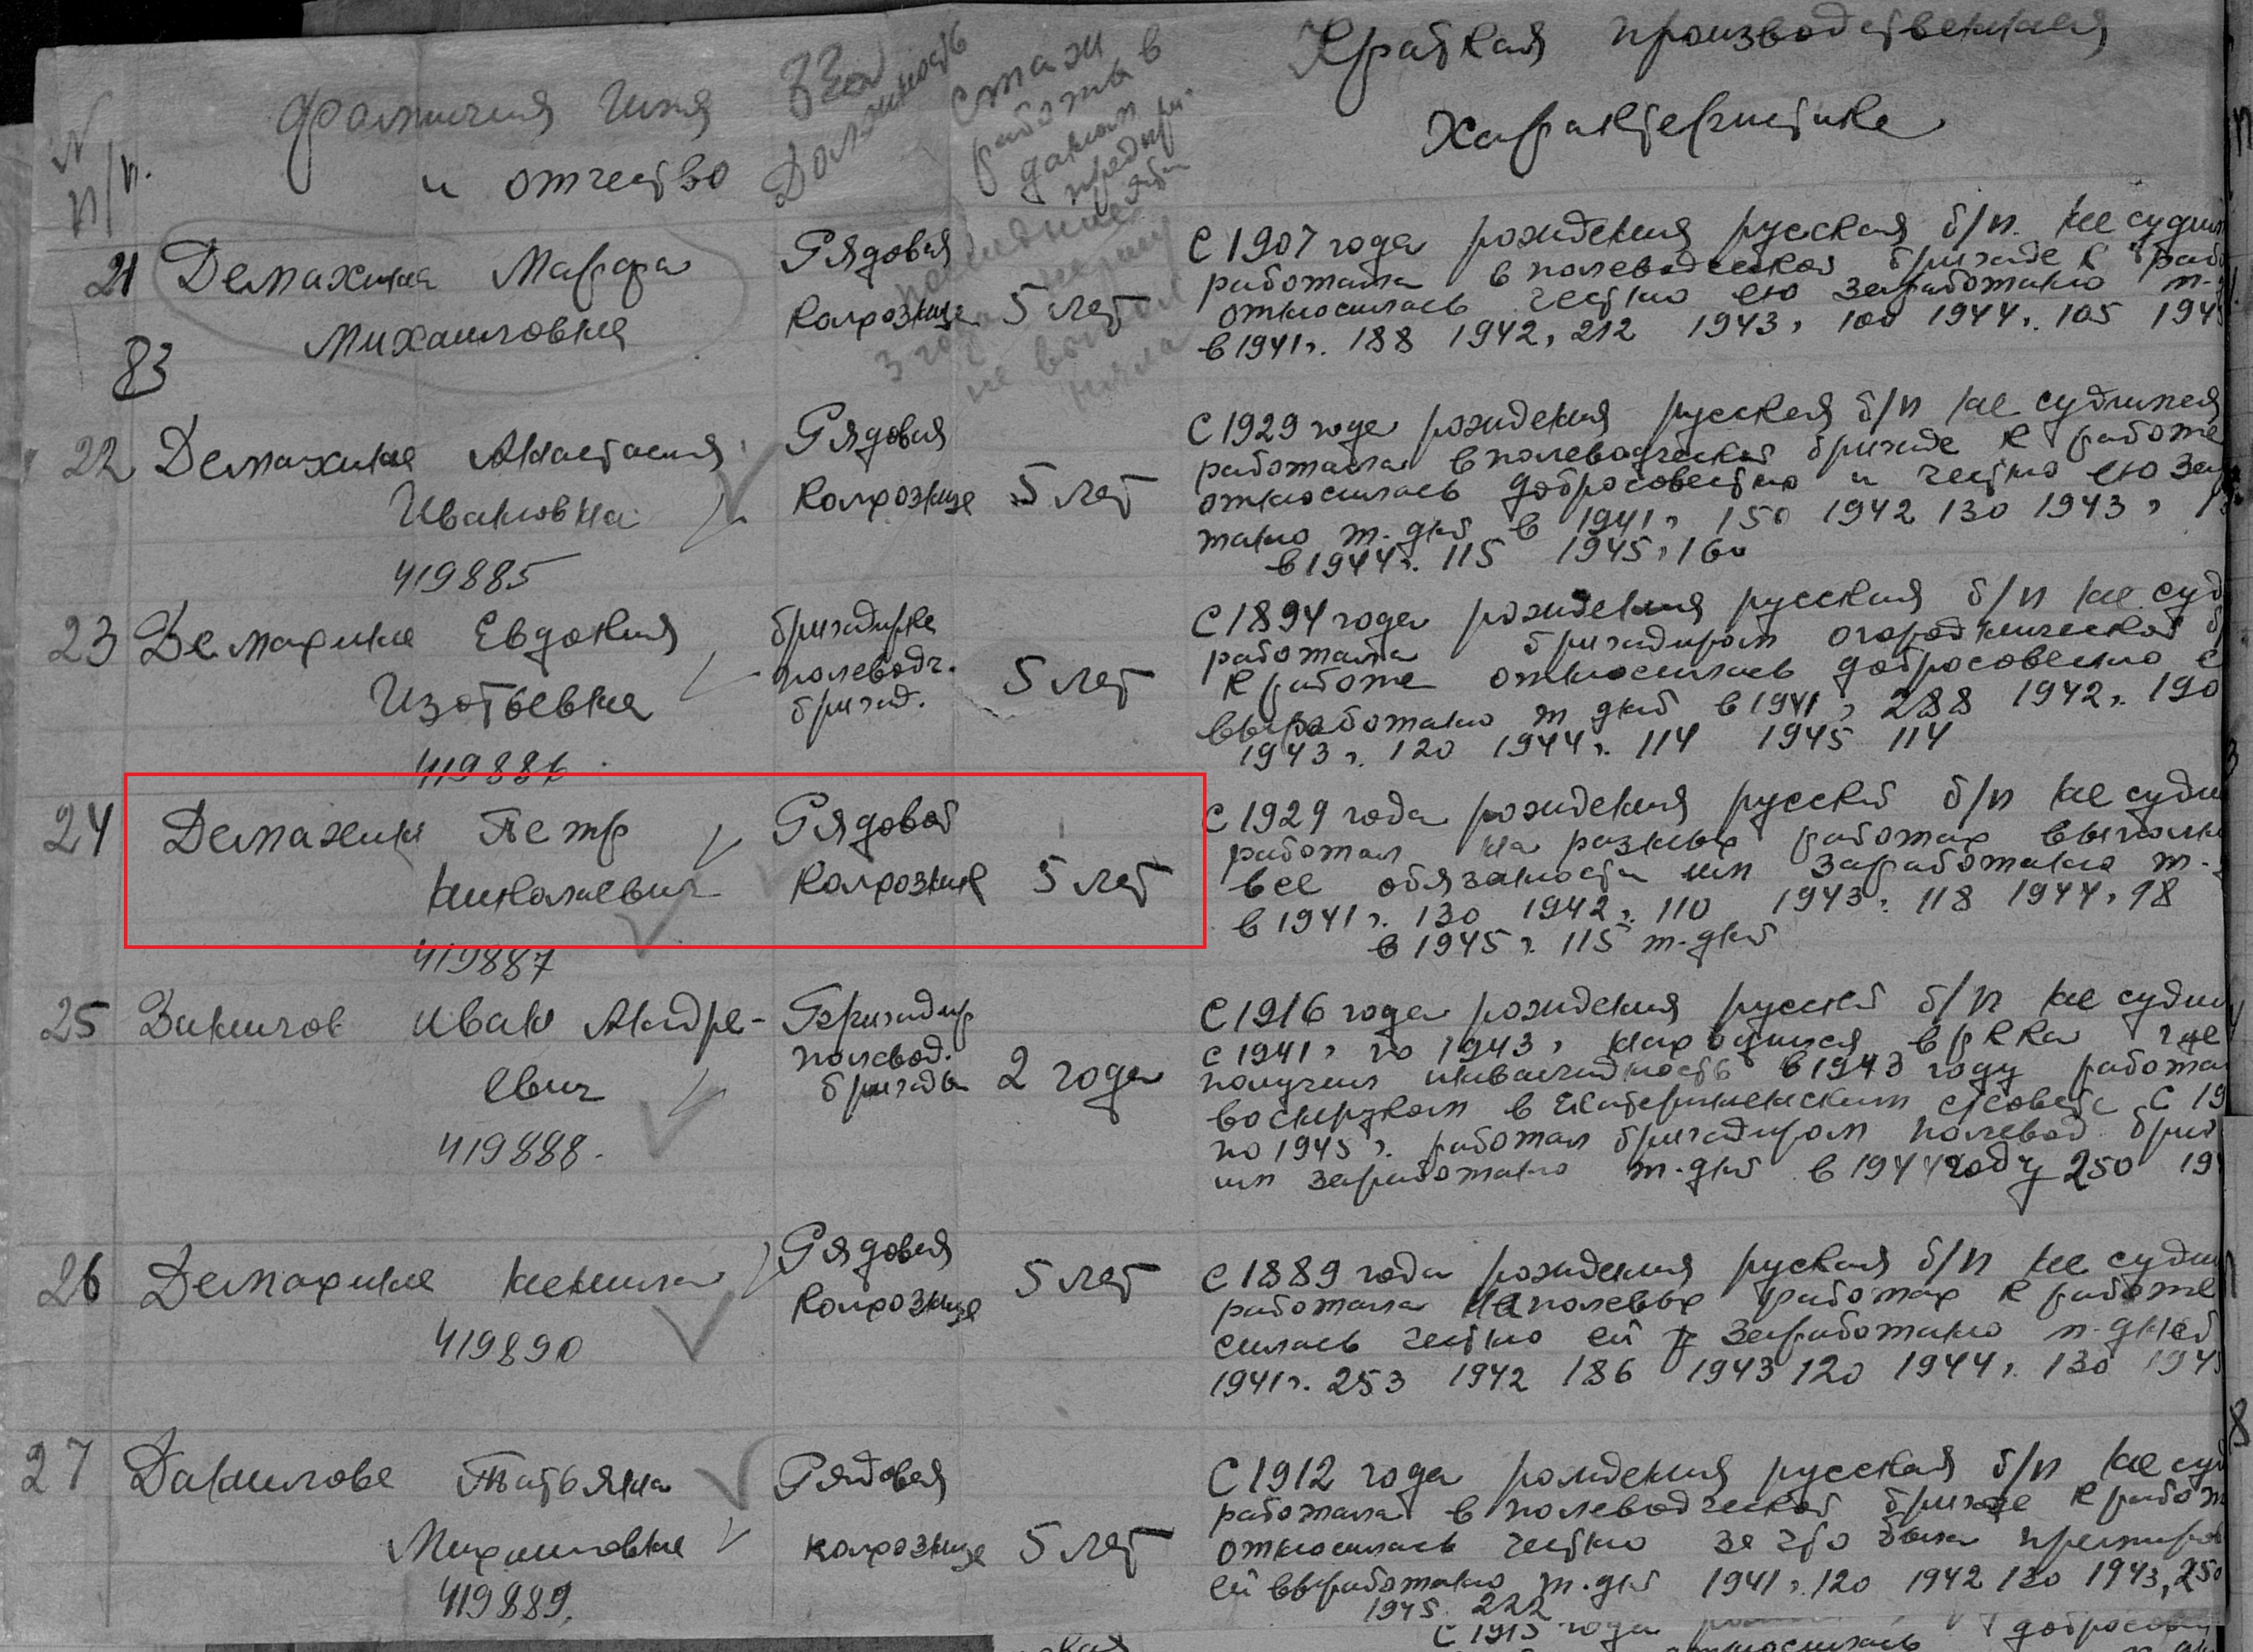 Краткая производственная
характеристика
Фамилия Имя
и отчество
Должность
Стаж
работы в
данном
N
п/п.
21 Демахина Марфа
Михаиловна
83
Рядовая
колхозница 5 лет
С 1907 года рождения русская б/п. не судим
работала в полеводческой бригаде к
относилась честно ею заработано т-
в 1941г. 188 1942г 212 1943г 100 1944г. 105 194
22 Демахина Анастасия
Ивановна
419885
Рядовая
колхознице 5 лет
С 1929 года рождения русская б/п не судимая
работала в полеводческой бригаде к работе
относилась добросовестно и честно ею за
тано т. дней в 1941г 150 1942 130 1943г
в 1944г. 115 1945г 160
23 Демахина Евдокия
Изотьевна
419886
бригадирка
полеводч.
бригад.
5 лет
С 1894 года рождения русская б/п не суд
работала бригадиром огороднической
к работе относилась добросовесно
выработано т дней в 1941г 288 1942г. 190
1943г. 120 1944г. 114 1945 114
24 Демахин Петр
Николаевич
419887
Рядовой
колхозник 5 лет
С 1929 года рождения русской б/п не судим
работал на разных работах
все обязаности им заработано т-
в 1941г. 130 1942г. 110 1943г. 118 1944г. 98
в 1945г. 115 т-дней
25 Данилов Иван Андре-
евич
419888.
Бригадир
полевод.
бригады 2 года
С 1916 года рождения русской б/п не судим
с 1941г по 1943г находился в РККа где
получил инвалидность в 1943 году работа
военруком в сесовете С 19
по 1945г. работал бригадиром полевод. бриг
им заработано т-дней в 1944 году 250 19
26 Демахина Ненила
419890
Рядовая
колхознице 5 лет
С 1889 года рождения руская б/п не судим
работала на полевых работах к работе
силась честно ей заработано т-дней
1941г. 253 1942 186 1943 120 1944г. 130 194
27 Данилова Татьяна
Михаиловна
419889.
Рядовая
колхознице 5 лет
С 1912 года рождения русская б/п не суд
работала в полеводческой бригаде к работ
относилась честно за что была премиров
ей выработано т. дней 1941г. 120 1942 130 1943г 250
1945. 222
С 1915 года